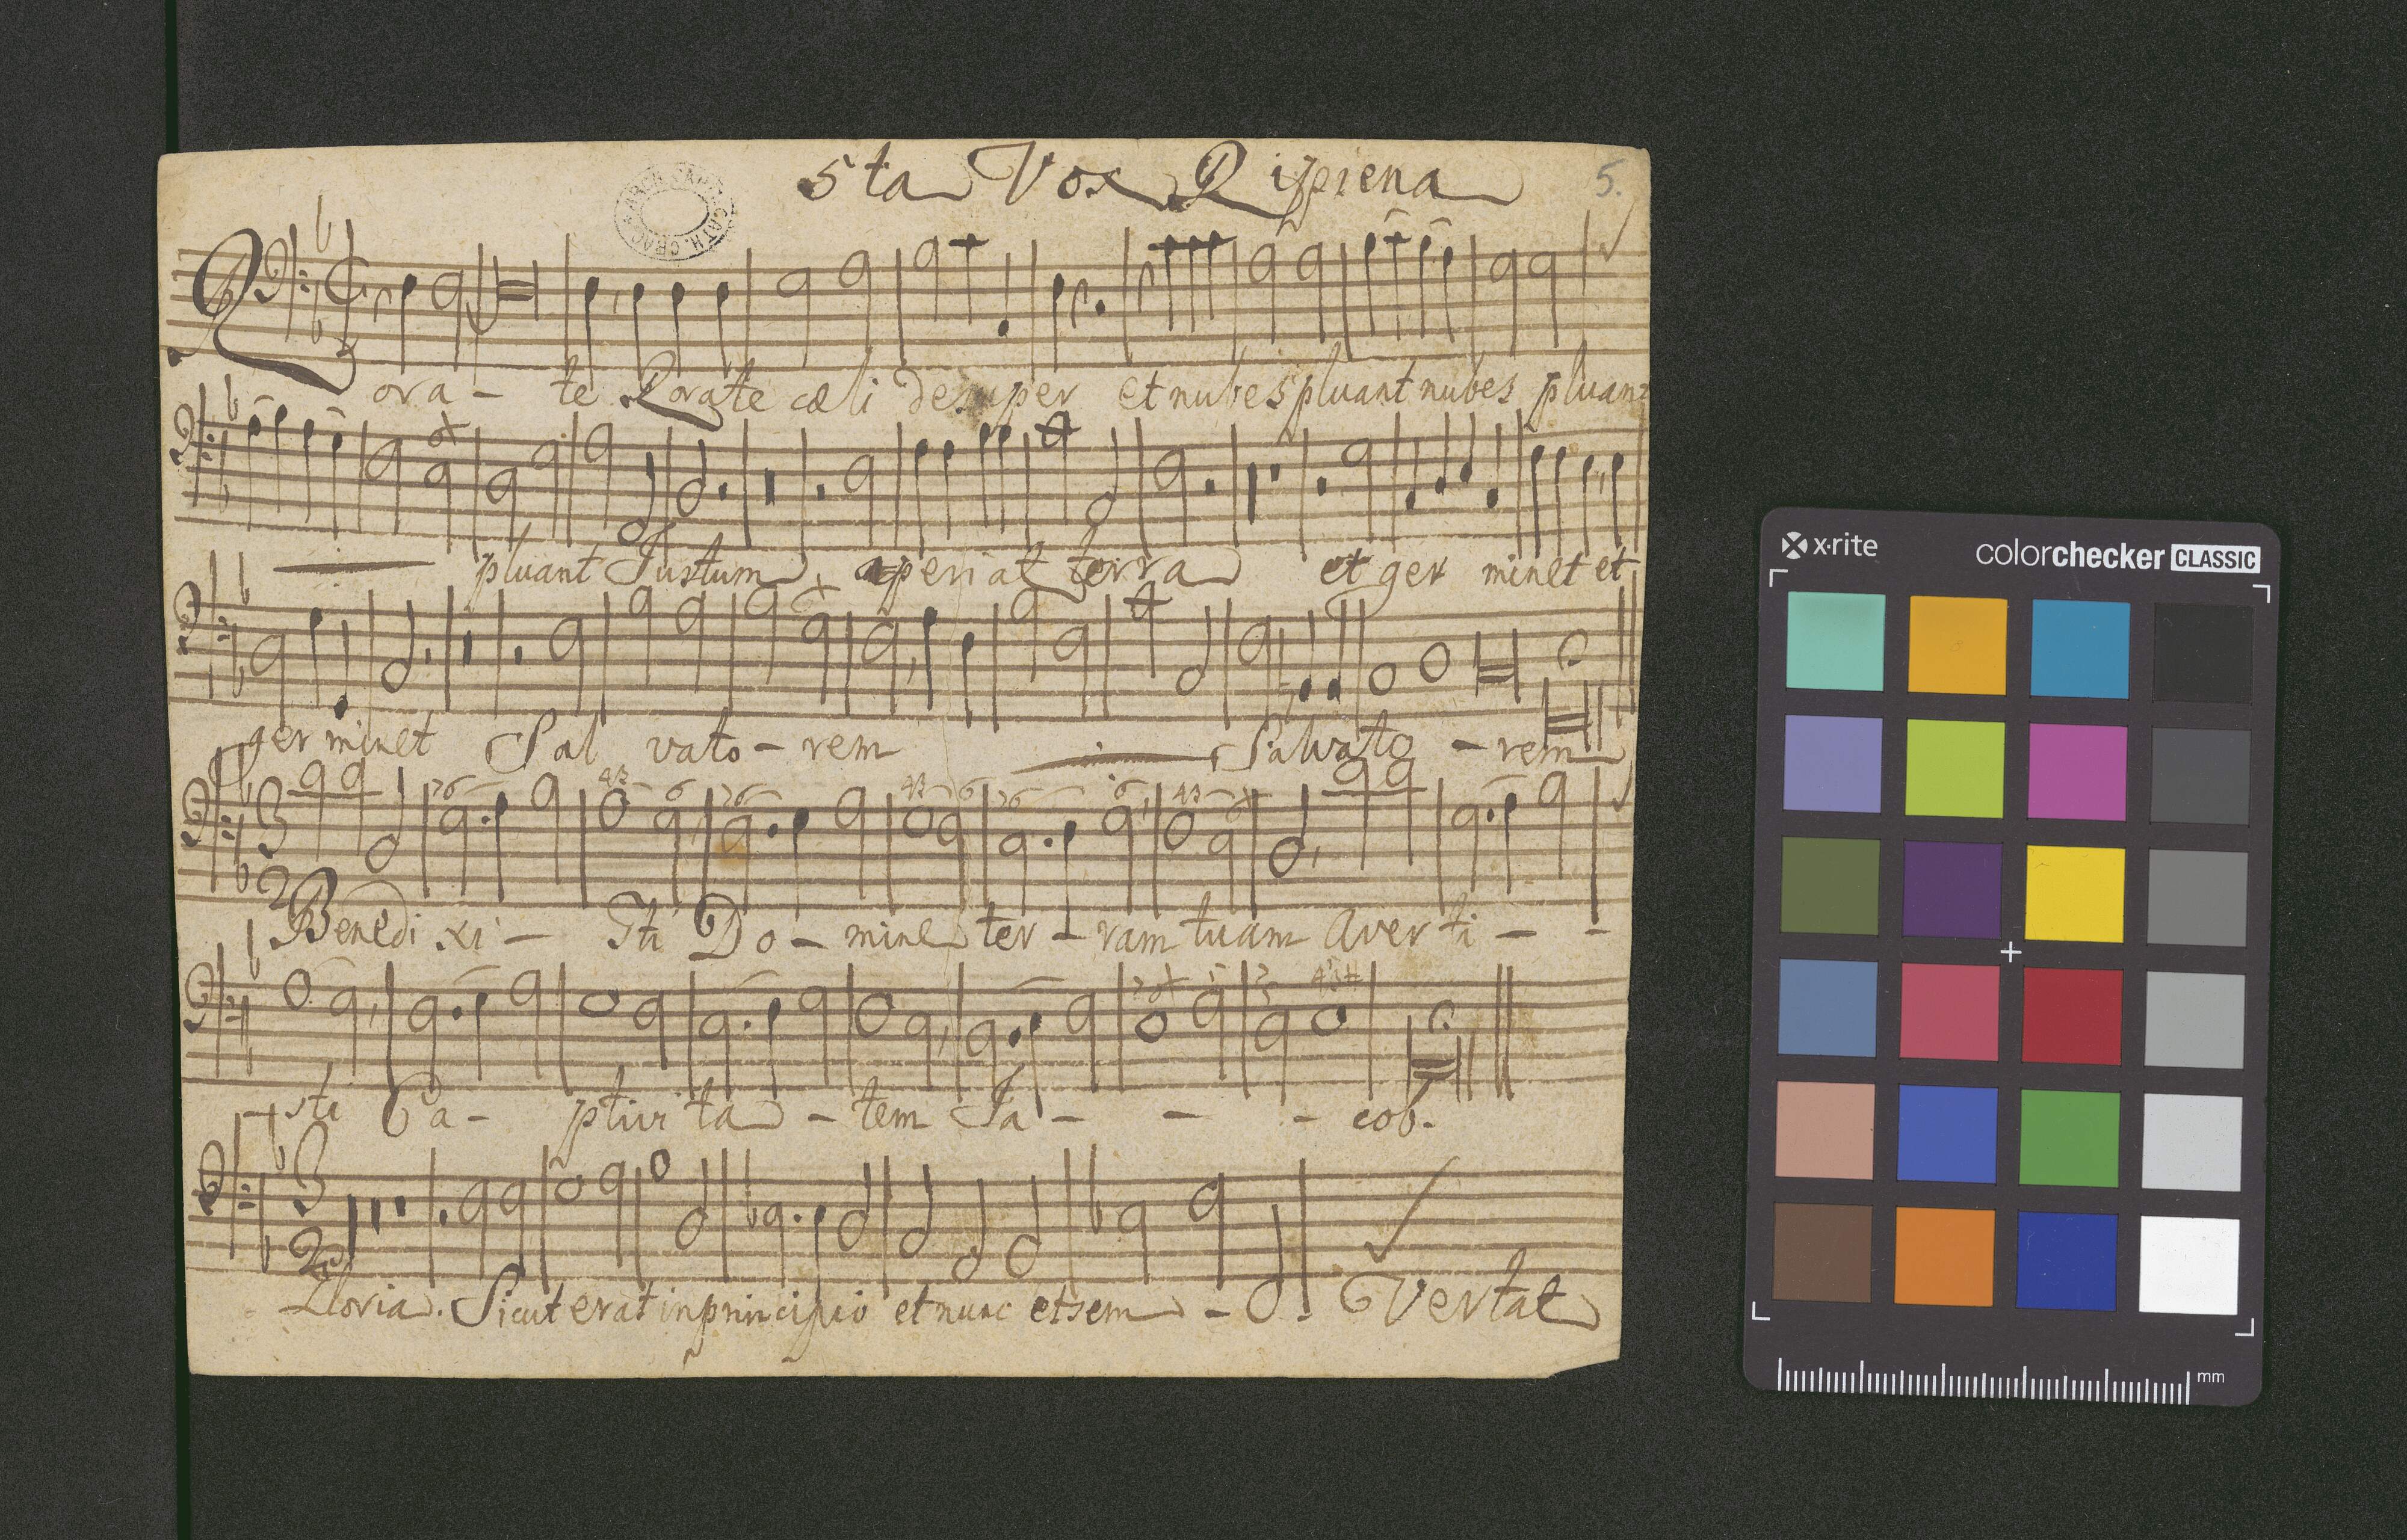 5ta Vox Ripiena 5.
ARCH. CAP. CATH. CRAC.
Rora - te Rorate cæli desuper et nubes pluant nubes pluant
pluant Justum aperiat terra et ger minet et
germinet Sal vato - rem Salvato - rem
3 76 43 6 76 43 6 76 6 43
2
Benedi xi - sti Do - mine ter - ram tuam Averti - -
- sti Ca - ptivi ta - tem Ja - - - cob.
3
2
Gloria. Sicut erat in principio et nunc et sem - Vertat
x·rite colorchecker CLASSIC
mm